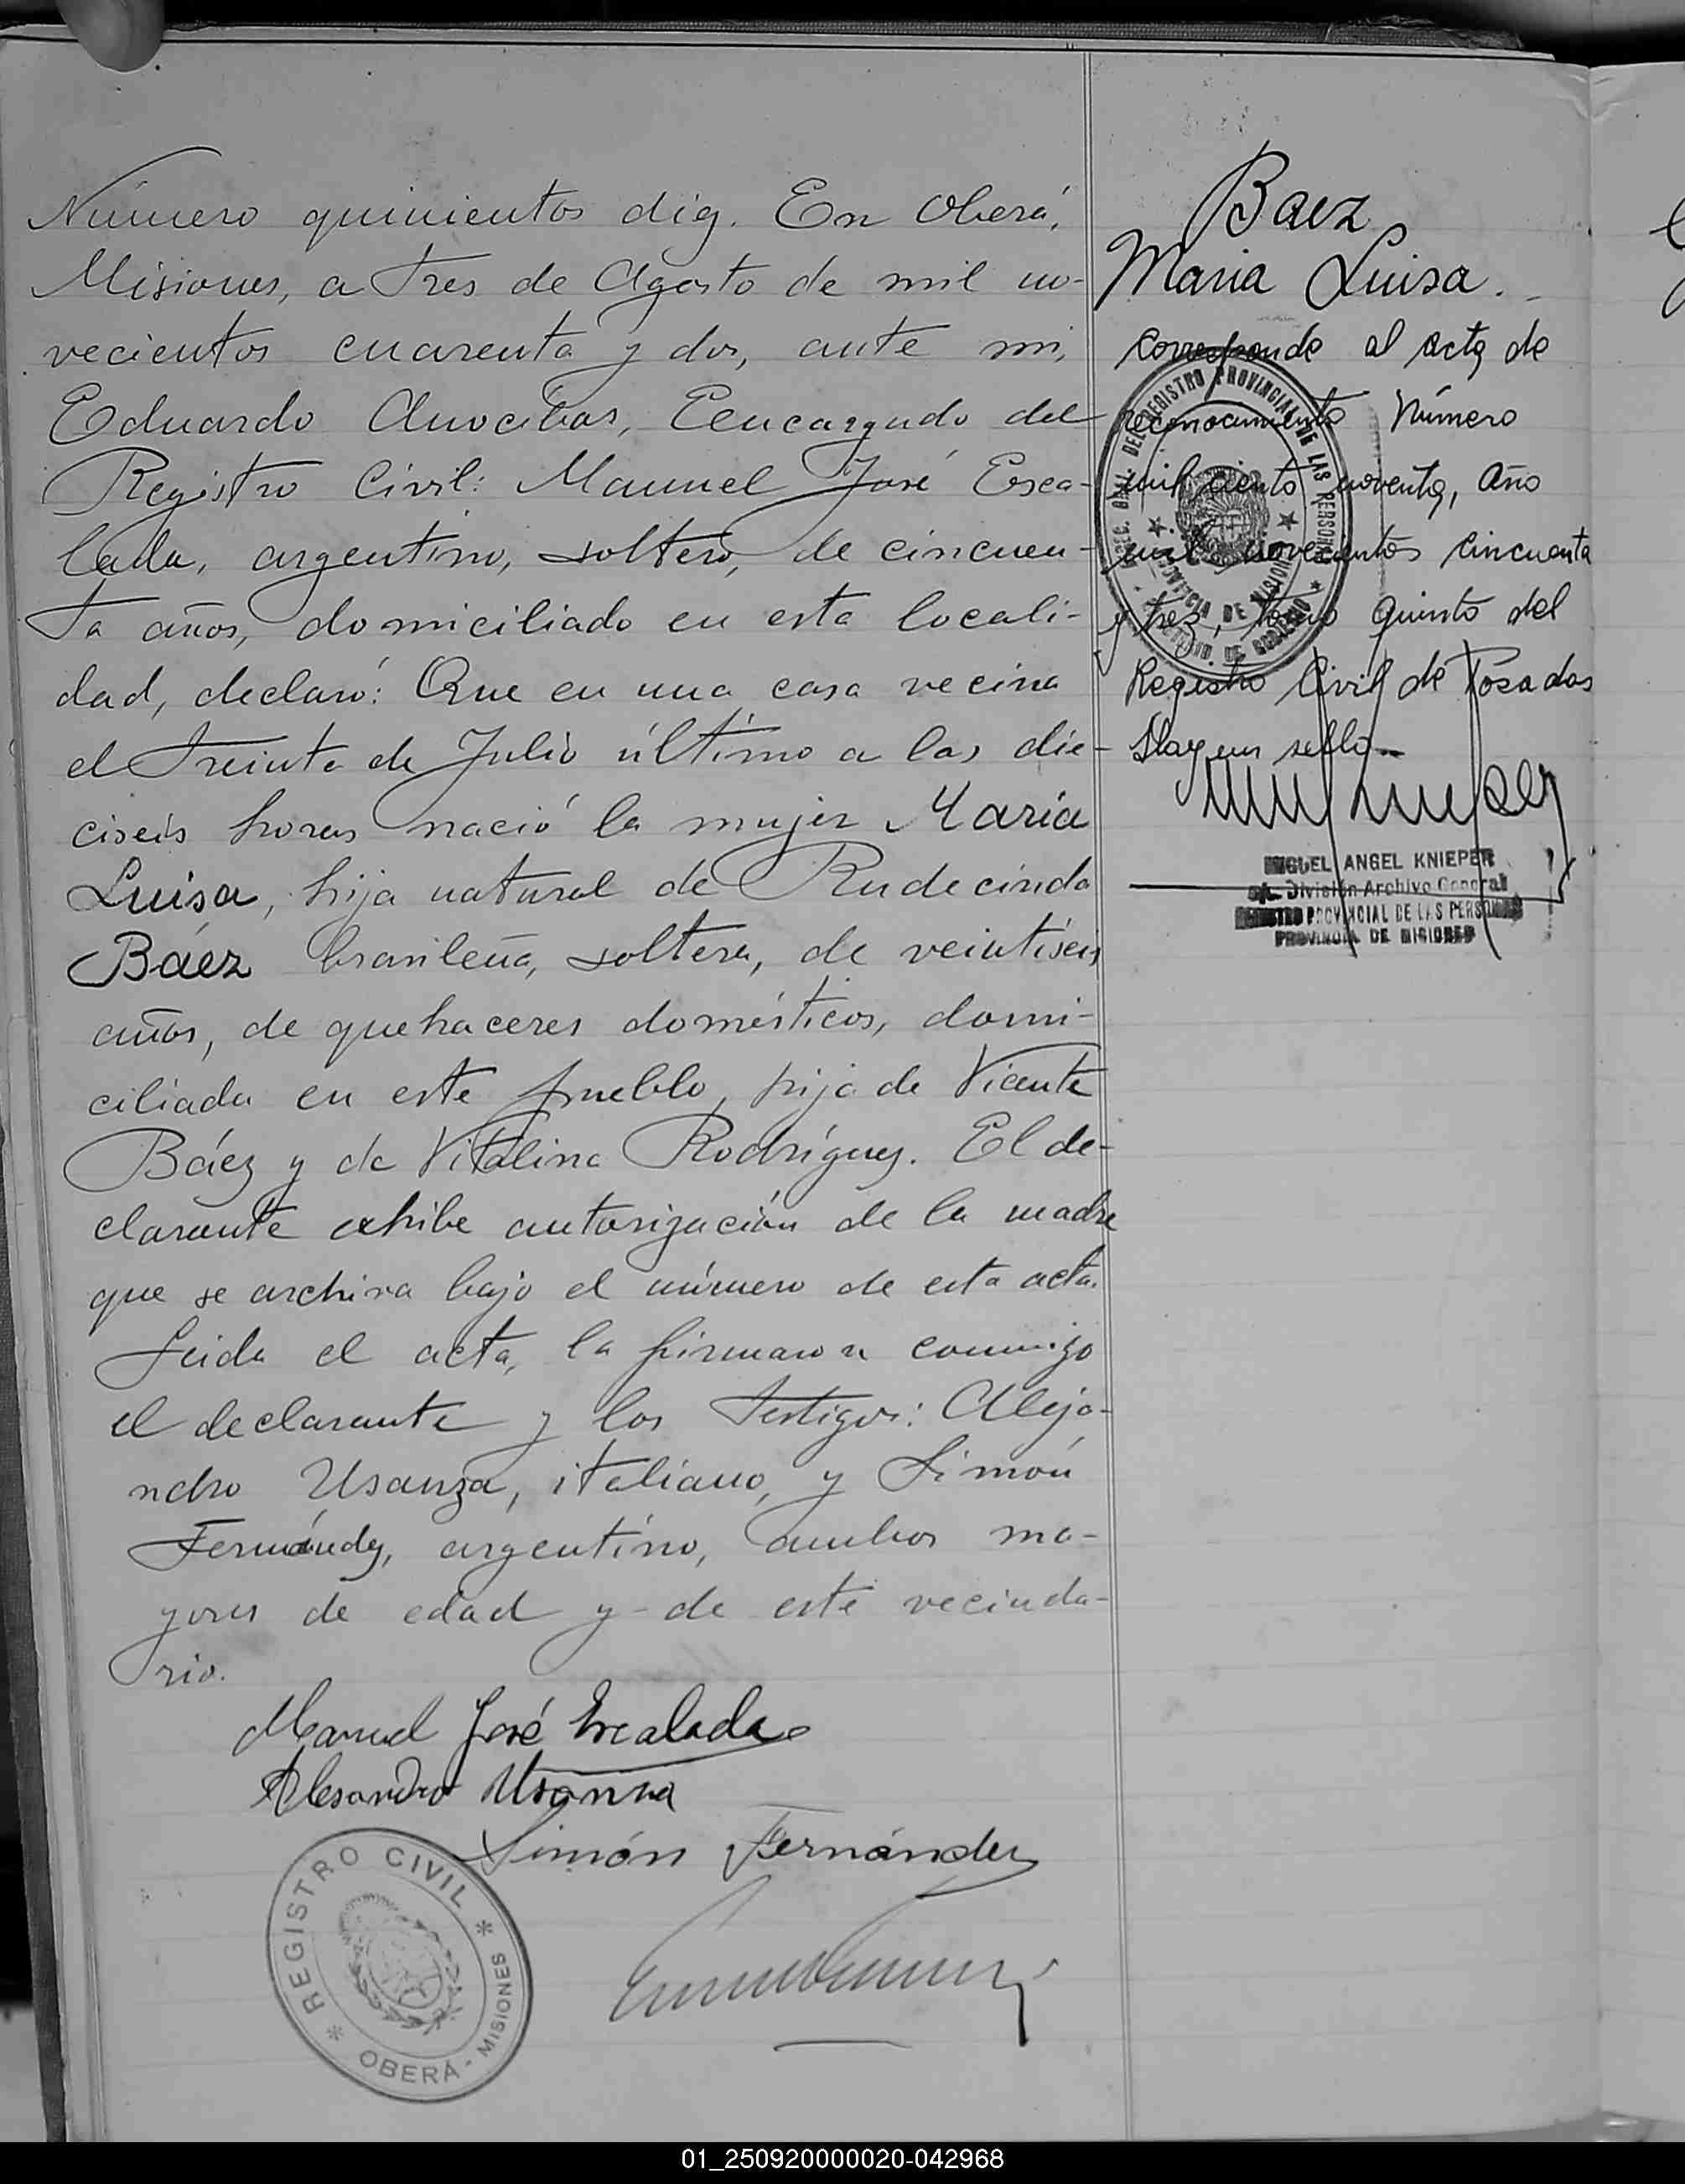 Número quinientos diez. En Oberá,
Misiones, a tres de Agosto de mil no-
vecientos cuarenta y dos, ante mi,
Eduardo Anocibar, Eencargado del
Registro Civil: Manuel José Esca-
lada, argentino, soltero, de cincuen-
ta años, domiciliado en esta locali-
dad, declaró: Que en una casa vecina
el treinta de Julio último a las die-
ciseis horas nació la mujer María
Luisa, hija natural de Rudecinda
Báez brasileña, soltera, de veintiseis
años, de quehaceres domésticos, domi-
ciliada en este pueblo, hija de Vicente
Báez y de Vitalina Rodríguez. El de-
clarante exhibe autorización de la madre
que se archiva bajo el número de esta acta.
Leida el acta, la firmaron conmigo
el declarante y los testigos: Aleja-
ndro Usanza, italiano, y Simón
Fernández, argentino, ambos ma-
yores de edad y de este vecinda-
rio.
Manuel José Escalada
Alesandro Usanza
Simón Fernández
REGISTRO CIVIL
OBERÁ - MISIONES
Baez
Maria Luisa.
Corresponde al acta de
reconocimiento Número
mil ciento noventa, año
mil novecientos cincuenta
y tres, tomo quinto del
Registro Civil de Posadas
Hay un sello
DIREC. GRAL. DEL REGISTRO PROVINCIAL DE LAS PERSONAS
PROVINCIA DE MISIONES
MINIST. DE GOBIERNO
MIGUEL ANGEL KNIEPER
División Archivo General
REGISTRO PROVINCIAL DE LAS PERSONAS
PROVINCIA DE MISIONES
01_250920000020-042968